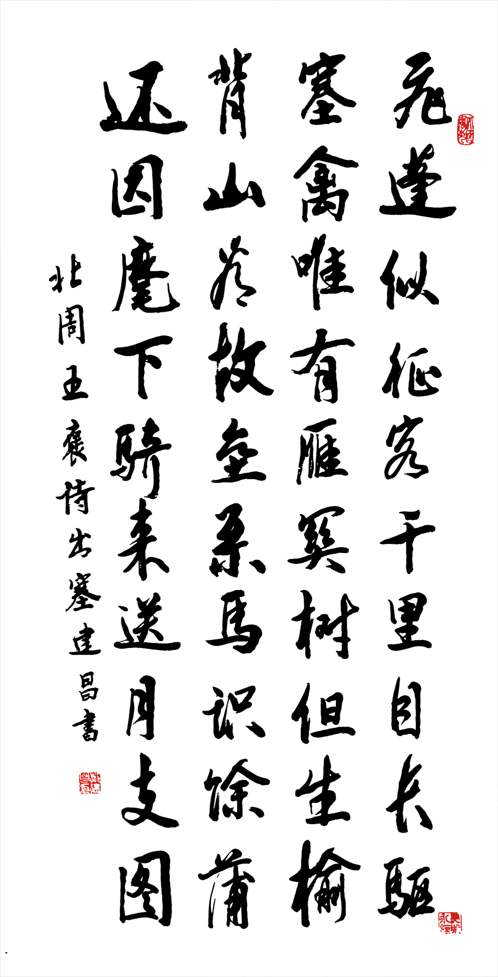 飛蓬似征客千里自长驱
塞禽唯有雁関树但生榆
背山看故垒系马识馀蒲
还因麾下骑来送月支图
北周王褒诗出塞建昌书